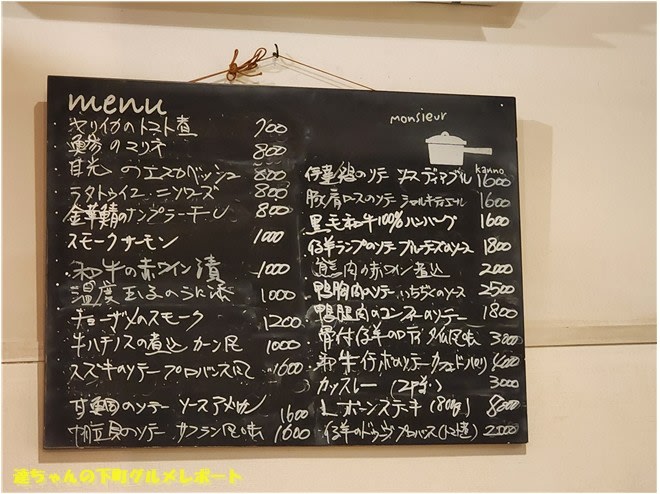 menu
ヤリイカのトマト煮 700
のマリネ 800
目光のエスカベッシュ 800
ラタトゥイユ ニソワーズ 800
金華鯖のナンプラー干し 800
スモークサーモン 1000
和牛の赤ワイン漬 1000
温度玉子のうに添 1000
チョーザメのスモーク 1200
牛ハチノスの煮込 カーン風 1000
スズキのソテー プロバンス風 1600
甘鯛のソテー ソースアメリケン 1600
帆立貝のソテー サフラン風味 1600
monsieur
kanno
伊達鶏のソテー ソースディアブル 1600
豚肩ロースのソテー シャルキティエール 1600
黒毛和牛100%ハンバーグ 1600
仔羊ランプのソテー ブルーチーズのソース 1800
熊肉の赤ワイン煮込 2000
鴨胸肉のソテー いちぢくのソース 2500
鴨腿肉のコンフィのソテー 1800
骨付仔羊のロティ タイム風味 3000
和牛のソテー カフェドパリ 4000
カッスレー (2P羊) 3000
Lボーンステーキ (800g) 8000
仔羊のドーヴ プロバンス(トマト煮) 2000
達ちゃんの下町グルメレポート